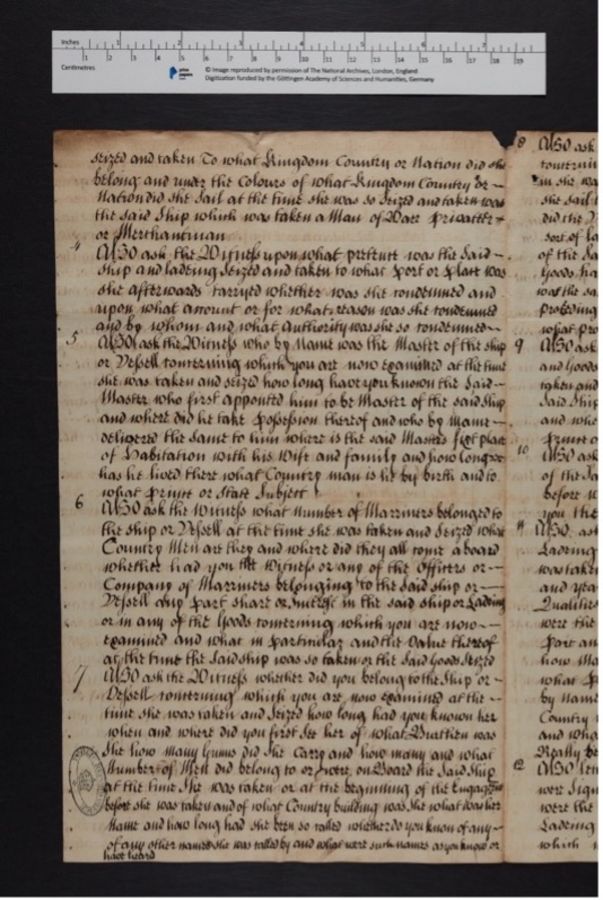 Inches
1 2 3 4 5 6 7
1 2 3 4 5 6 7 8 9 10 11 12 13 14 15 16 17 18 19
Centimetres
prize papers
© Image reproduced by permission of The National Archives, London, England
Digitization funded by the Göttingen Academy of Sciences and Humanities, Germany
seized and taken To what Kingdom Country or Nation did she
belong and under the Colours of what Kingdom Country or
Nation did she Sail at the time she was so Seized and taken was
the said Ship which was taken a Man of Warr Privatter
or Merchantman
4 Also ask the Witness upon what pretence was the said
Ship and lading Seized and taken to what Port or Place was
she afterwards carryed whether was she condemned and
upon what account or for what reason was she condemned
and by whom and what Authority was she so condemned
5 Also ask the Witness who by Name was the Master of the ship
or Vessell concerning which you are now examined at the time
she was taken and seized how long have you known the said
Master who first appointed him to be Master of the said Ship
and where did he take Possession thereof and who by Name
delivered the same to him where is the said Masters fixt place
of Habitation with his Wife and family and how long
has he lived there what Country man is he by birth and to
what Prince or State Subject
6 Also ask the Witness what Number of Marriners belonged to
the ship or Vessell at the time she was taken and Seized what
Country Men are they and where did they all come a board
whether had you the Witness or any of the Officers or
Company of Marriners belonging to the said ship or
Vessell any Part share or Interest in the said ship or Lading
or in any of the Goods concerning which you are now
examined and what in Particular and the Value thereof
at the time the said ship was so taken or the said Goods Seized
7 Also ask the Witness whether did you belong to the Ship or
Vessell concerning which you are now examined at the
time she was taken and Seized how long had you known her
when and where did you first See her of what Burthen was
She how many Gunns did she Carry and how many and what
Number of Men did belong to or were on Board the said Ship
at the time She was taken or at the beginning of the Engagement
before she was taken and of what Country building was She what was her
Name and how long had she been so called whether do you know of any
of any other names she was called by and what were such names as you know or
have heard
8 Also ask
in she wa
she sail
did the
sort of la
of the sa
Goods ha
was the sa
9 Also ask
and Goods
taken and
said Ship
and who
10 Also ask
of the sa
before
you the
11 Also ask
Lading
was taken
and yea
Qualities
were the
Part an
how Ma
what
by Name
Country
and wha
Really be
12
were Sign
were the
Lading
which